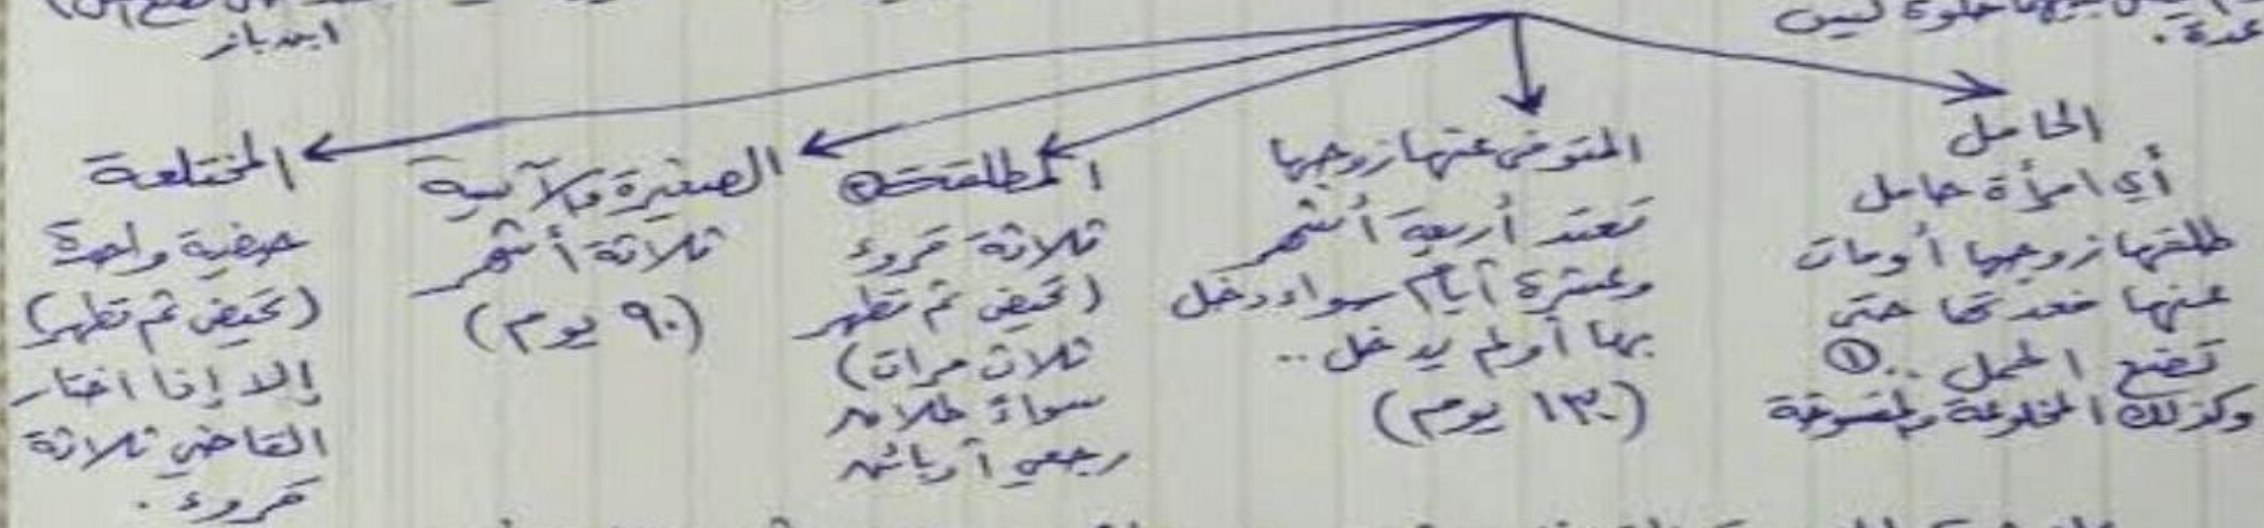 ابن باز
عدة .
الحامل
أي امرأة حامل
طلقها زوجها أو مات
عنها فعدتها حتى
تضع الحمل .. ①
وكذلك المخلوعة والمفسوخة
المتوفى عنها زوجها
تعتد أربعة أشهر
وعشرة أيام سواء دخل
بها أو لم يدخل ..
(١٣٠ يوم)
المطلقة ②
ثلاثة قروء
(تحيض ثم تطهر
ثلاث مرات)
سواء طلاق
رجعي أو بائن
الصغيرة والآيسة
ثلاثة أشهر
(٩٠ يوم)
المختلعة
حيضة واحدة
(تحيض ثم تطهر)
إلا إذا اختار
القاضي ثلاثة
قروء .